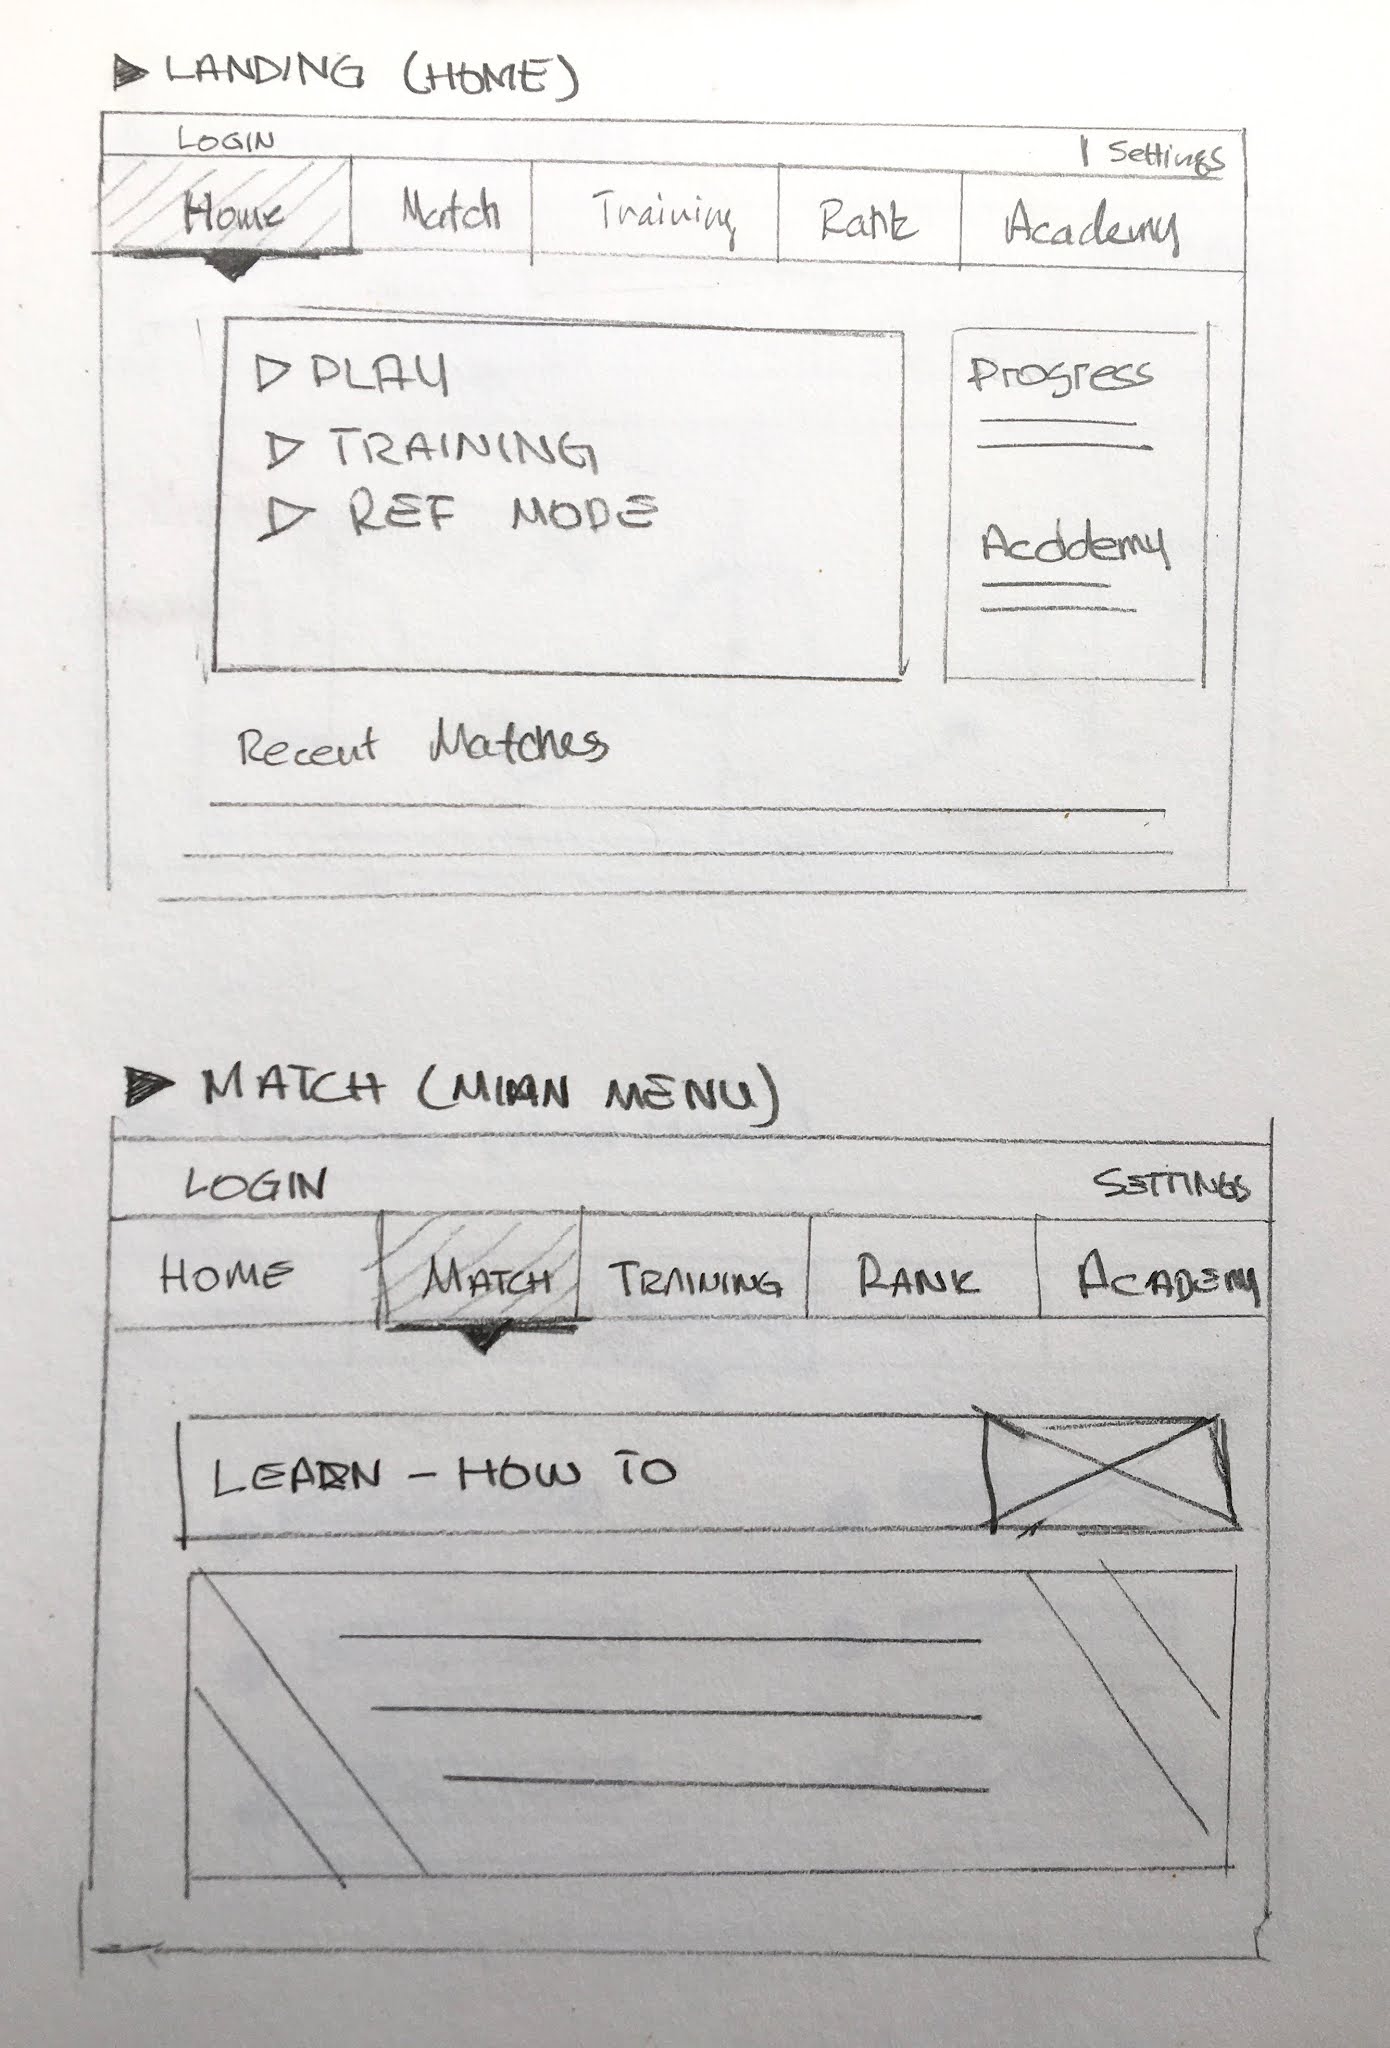 LANDING (HOME)
LOGIN | Settings
Home Match Training Rank Academy
PLAY
TRAINING
REF MODE
Progress
Acddemy
Recent Matches
MATCH (MIAN MENU)
LOGIN SETTINGS
HOME MATCH TRAINING RANK ACADEMY
LEARN - HOW TO